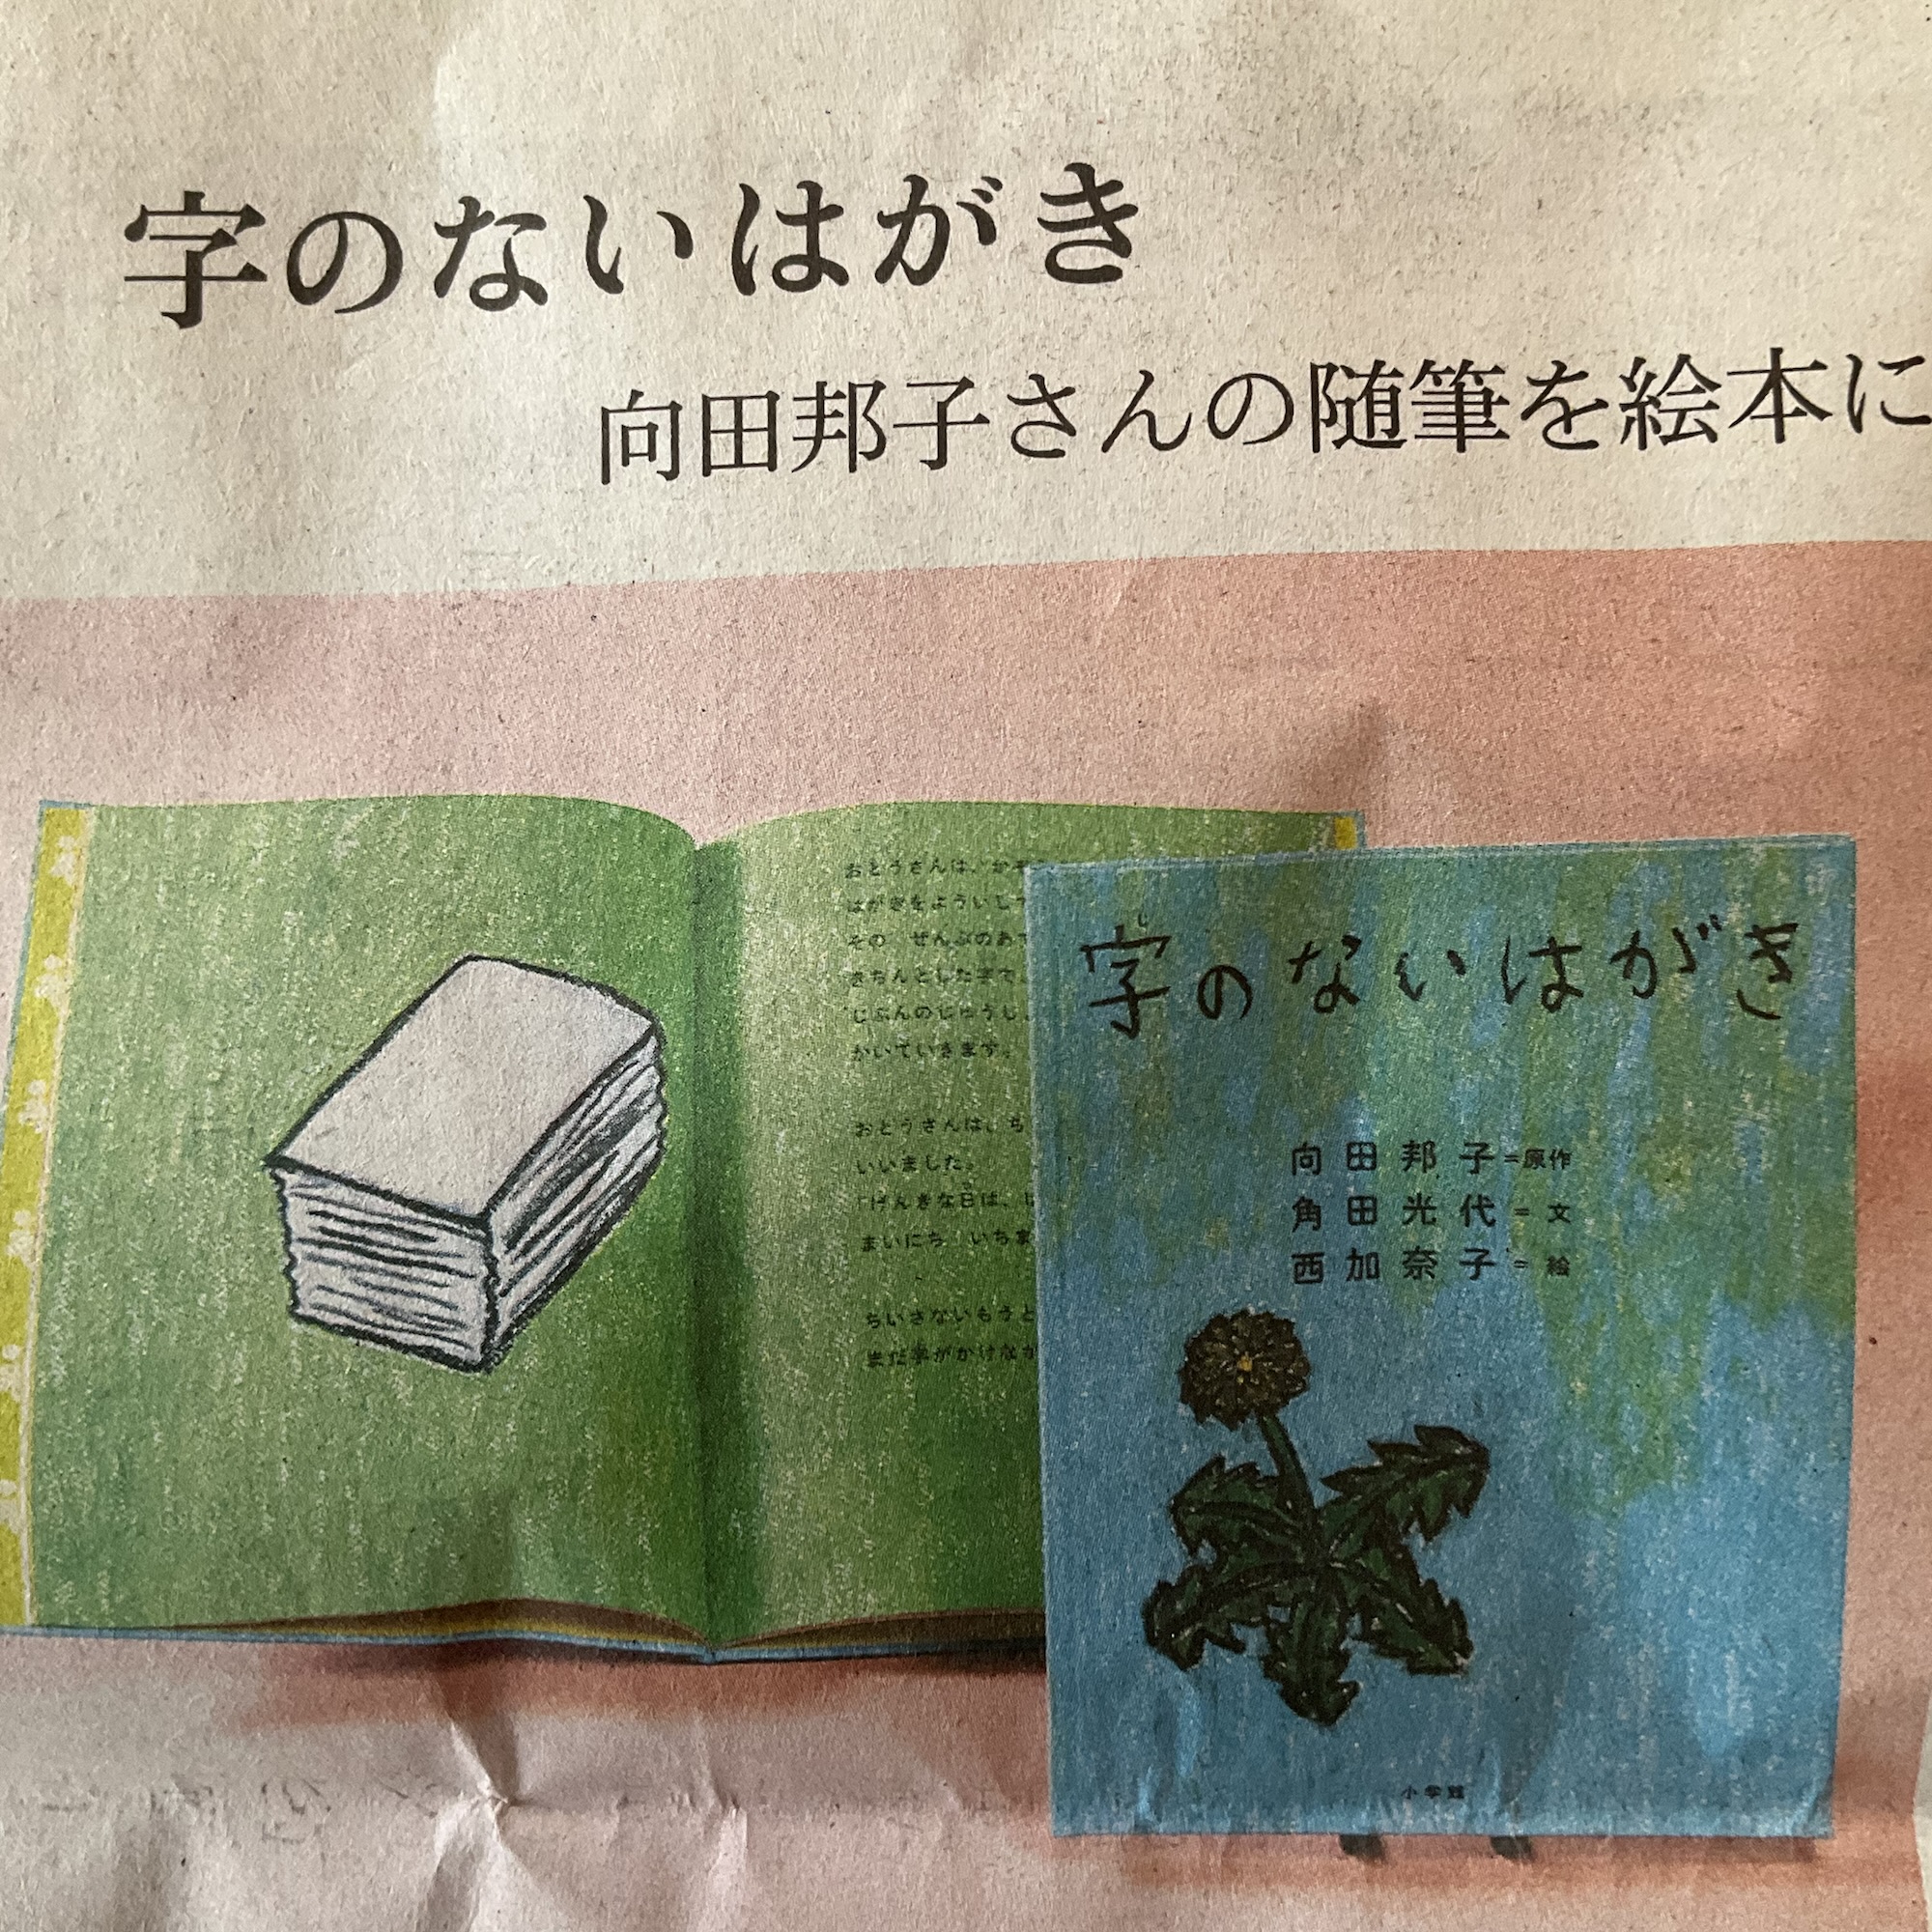 字のないはがき
向田邦子さんの随筆を絵本に
おとうさんは、かぞ
はがきをよういして
その ぜんぶのあて
きちんとした字で、
じぶんのじゅうし
かいていきます。
おとうさんは、ち
いいました。
「げんきな日は、は
まいにち いちま
ちいさないもうと
まだ字がかけなか
字のないはがき
向田邦子=原作
角田光代=文
西加奈子=絵
小学館